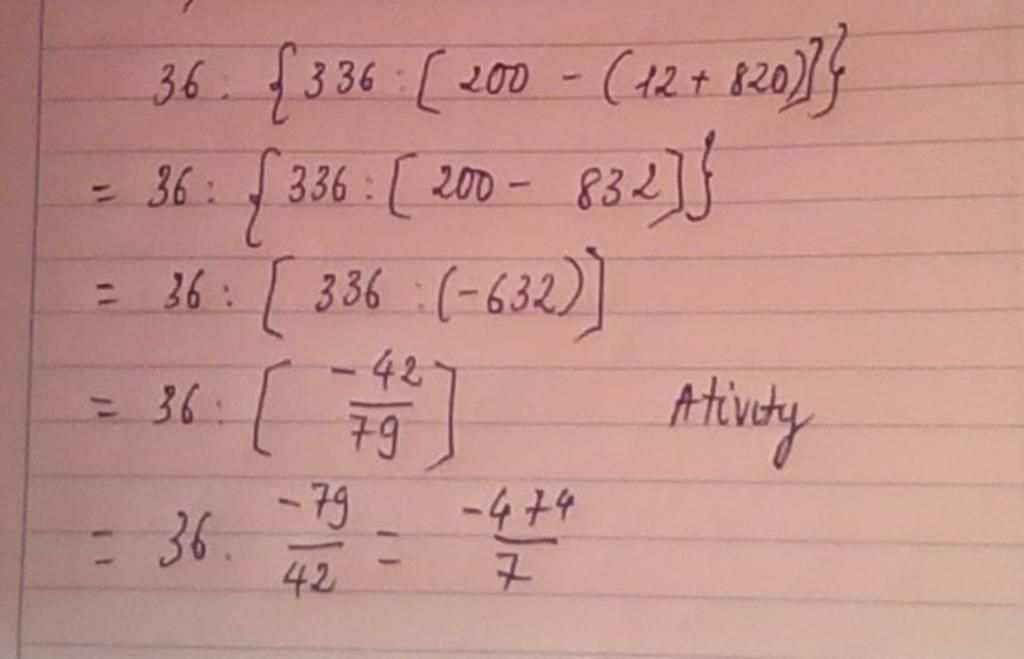 36 : {336 : [200 - (12 + 820)]}
= 36 : {336 : [200 - 832]}
= 36 : [336 : (-632)]
= 36 : [-42/79] Ativity
= 36 . -79/42 = -474/7